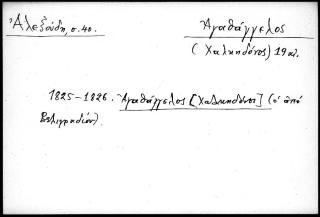 Ἀλεξούδη, σ. 40.
Ἀγαθάγγελος
(Χαλκηδόνος) 19 αἰ.
1825-1826. Ἀγαθάγγελος [Χαλκηδόνος] (ὁ ἀπό
Βελιγραδίου).